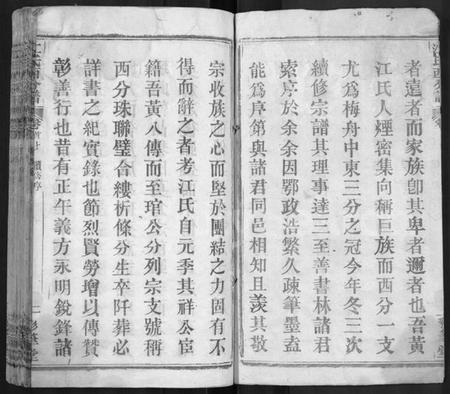 者遠者而家族卽其卑者邇者也吾黃
江氏人煙密集向稱巨族而西分一支
尤爲梅舟中東三分之冠今年冬三次
續修宗譜其理事達三至善書林諸君
索序於余余因鄂政浩繁久疎筆墨盍
能爲序第與諸君同邑相知且羨其敬
宗收族之心而堅於團結之力固有不
得而辭之者考江氏自元季其祥公宦
籍吾黃八傳而至琯公分列宗支號稱
西分珠聯璧合縷析條分生卒阡葬必
詳書之紀實錄也節烈賢勞增以傳贊
彰善行也昔有正午義方永明銳鋒諸
江氏西分譜
卷首